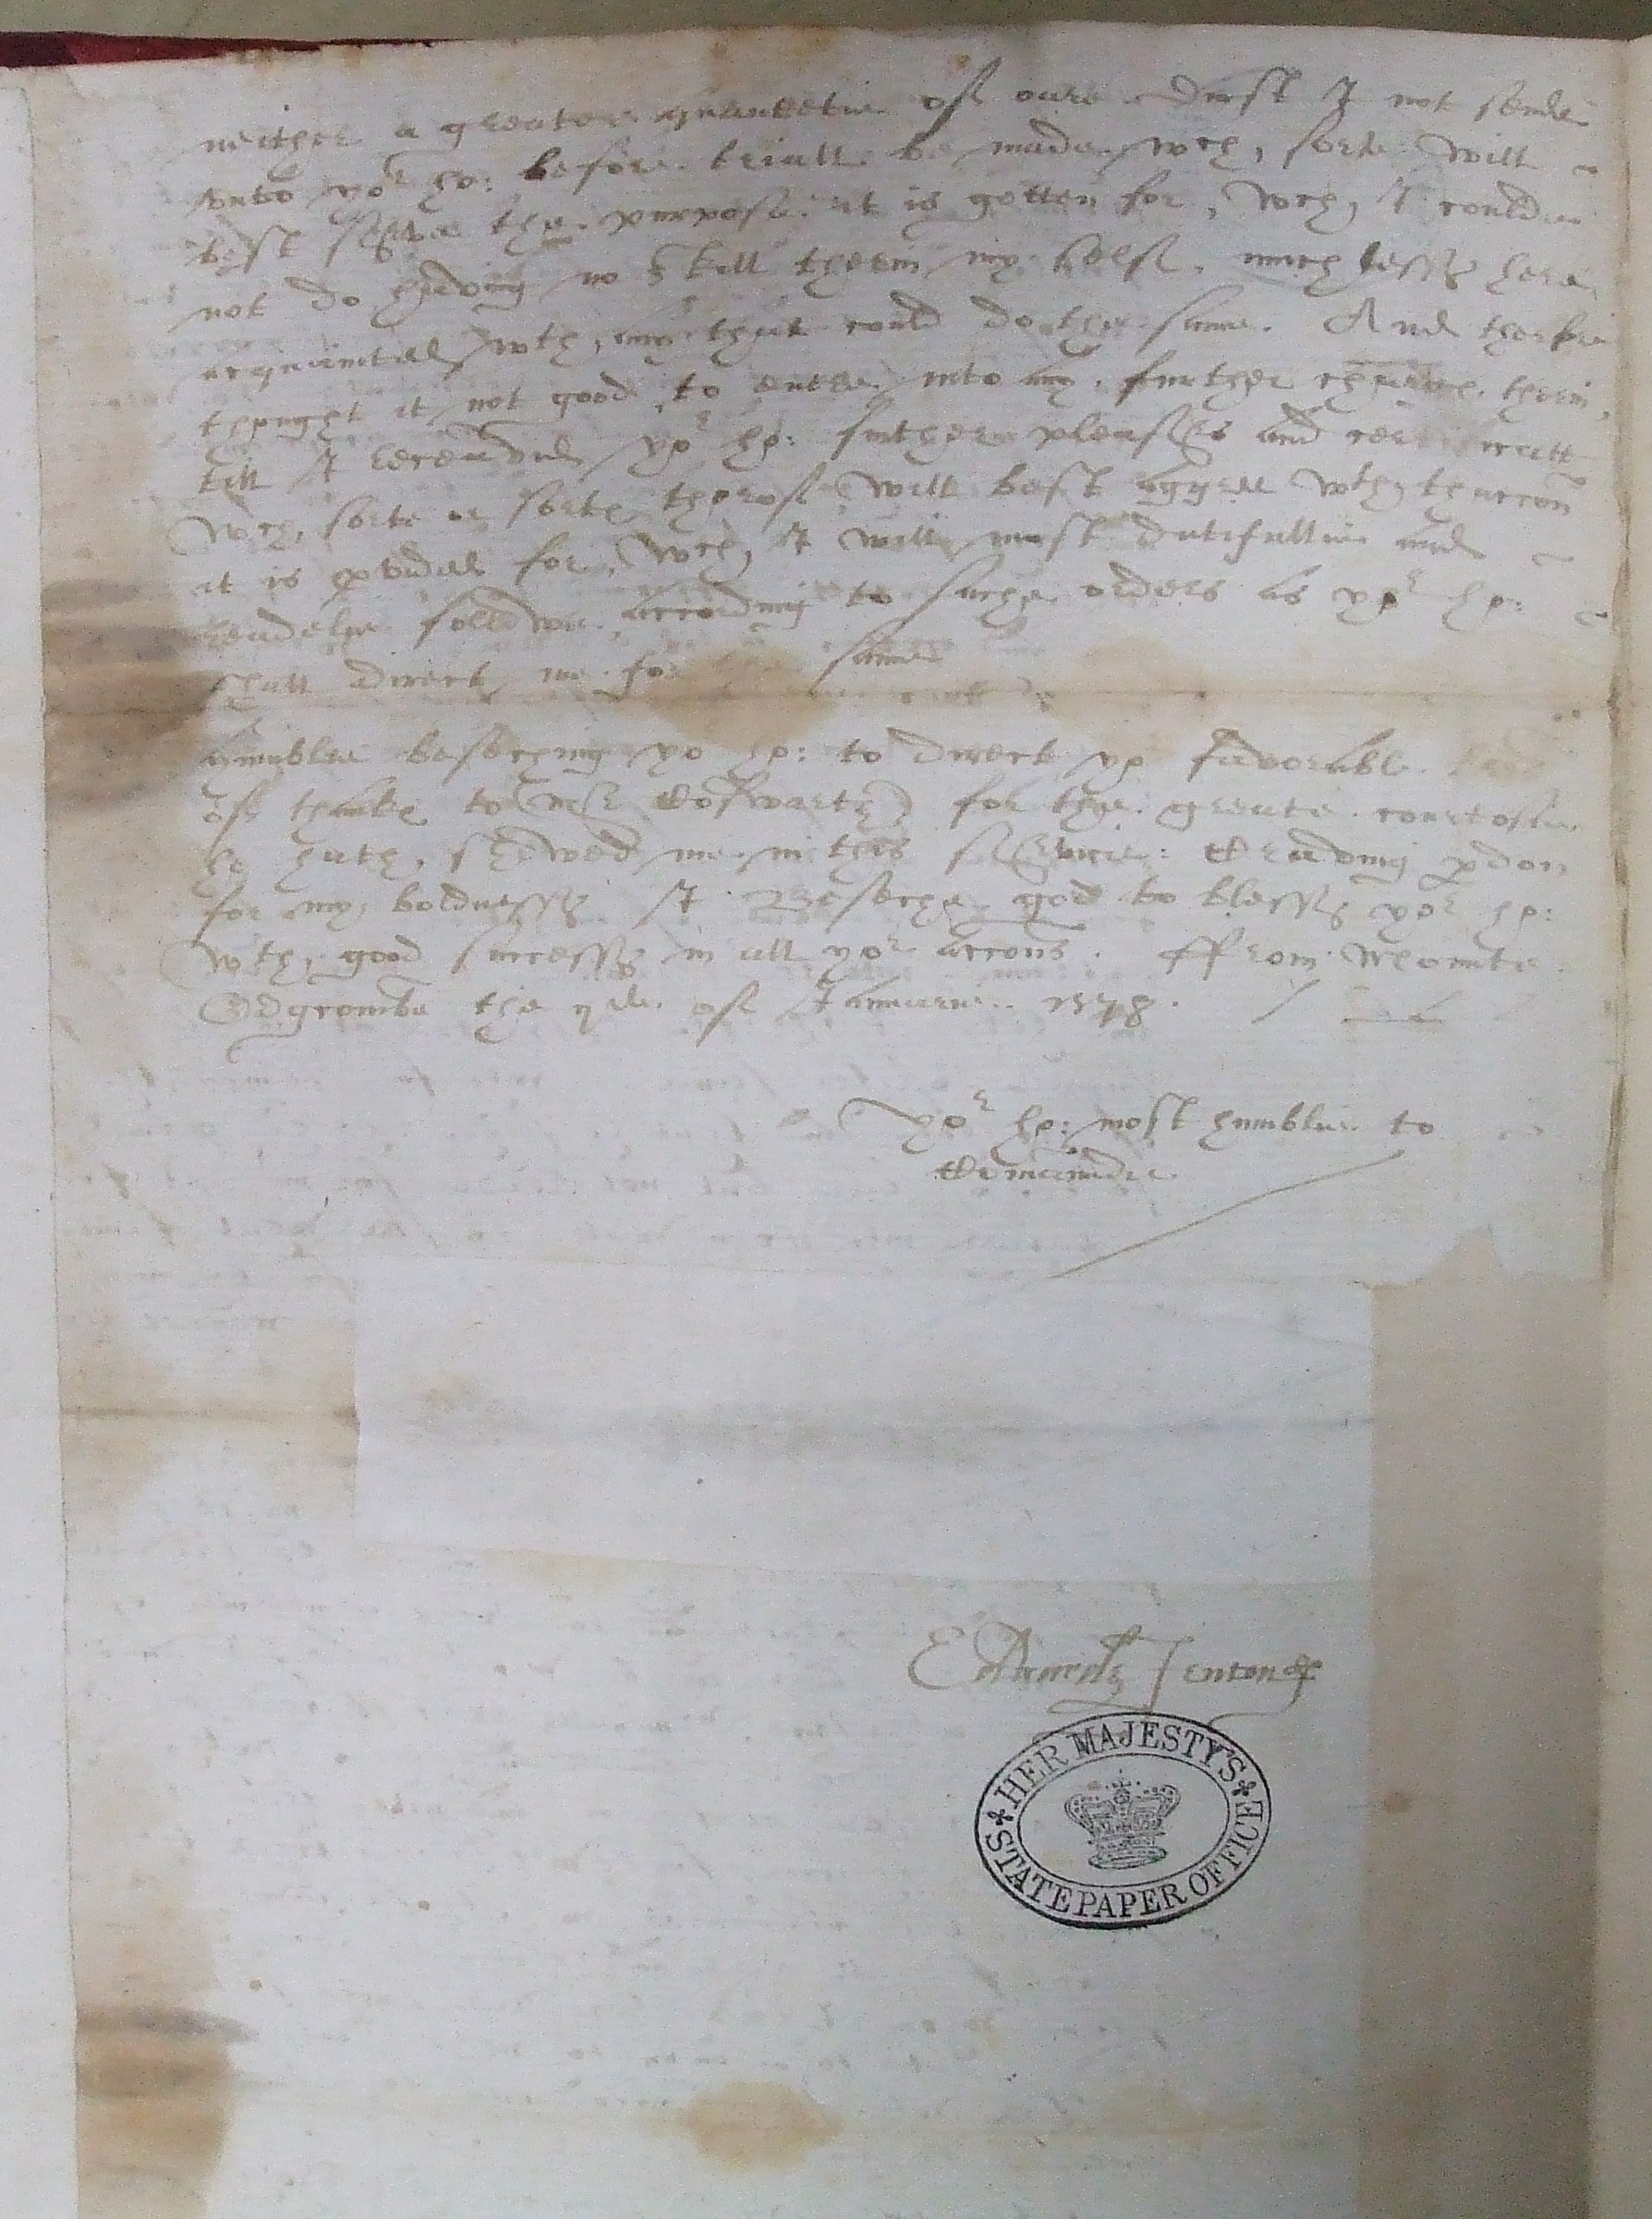 neither a greator quantetie of oure durst I not sende
vnto yor ho: before triall be made, wch, sorte will
best serve the purpose it is gotten for, wch, I coulde
not do having no skill therin my self, much lesse here
acquainted wth, any that could do the same. And therfore
thought it not good to enter into any further charge therin,
till I receaved yor ho: further pleasure and
wch, sorte or sorte therof will best agree wth, thaccon
it is provided for, wch, I will most dutifullie and
readelie followe according to suche orders as yor ho:
shall direct me for same
humblie beseching yo ho: to direct yor favorable
of thanke to mr Edgwarth for the greate courtosie
he hath, shewed me in this service: Craving pdon
for my boldnesse I Beseche god to blesse yor ho:
wth, good successe in all yor accons. ffrom Mounte
Edgcombe the of Januarie. 1578.
Yor ho: most humblie to
Comaunde
Edward Fenton
HER MAJESTY'S
STATE PAPER OFFICE